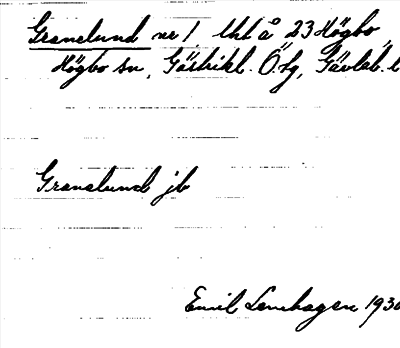 Granelund nr 1 Uht å 23 Högbo,
Högbo sn, Gästrikl. Ö. tg, Gävleb. l
Granelund jb
Emil Lenhagen 1930